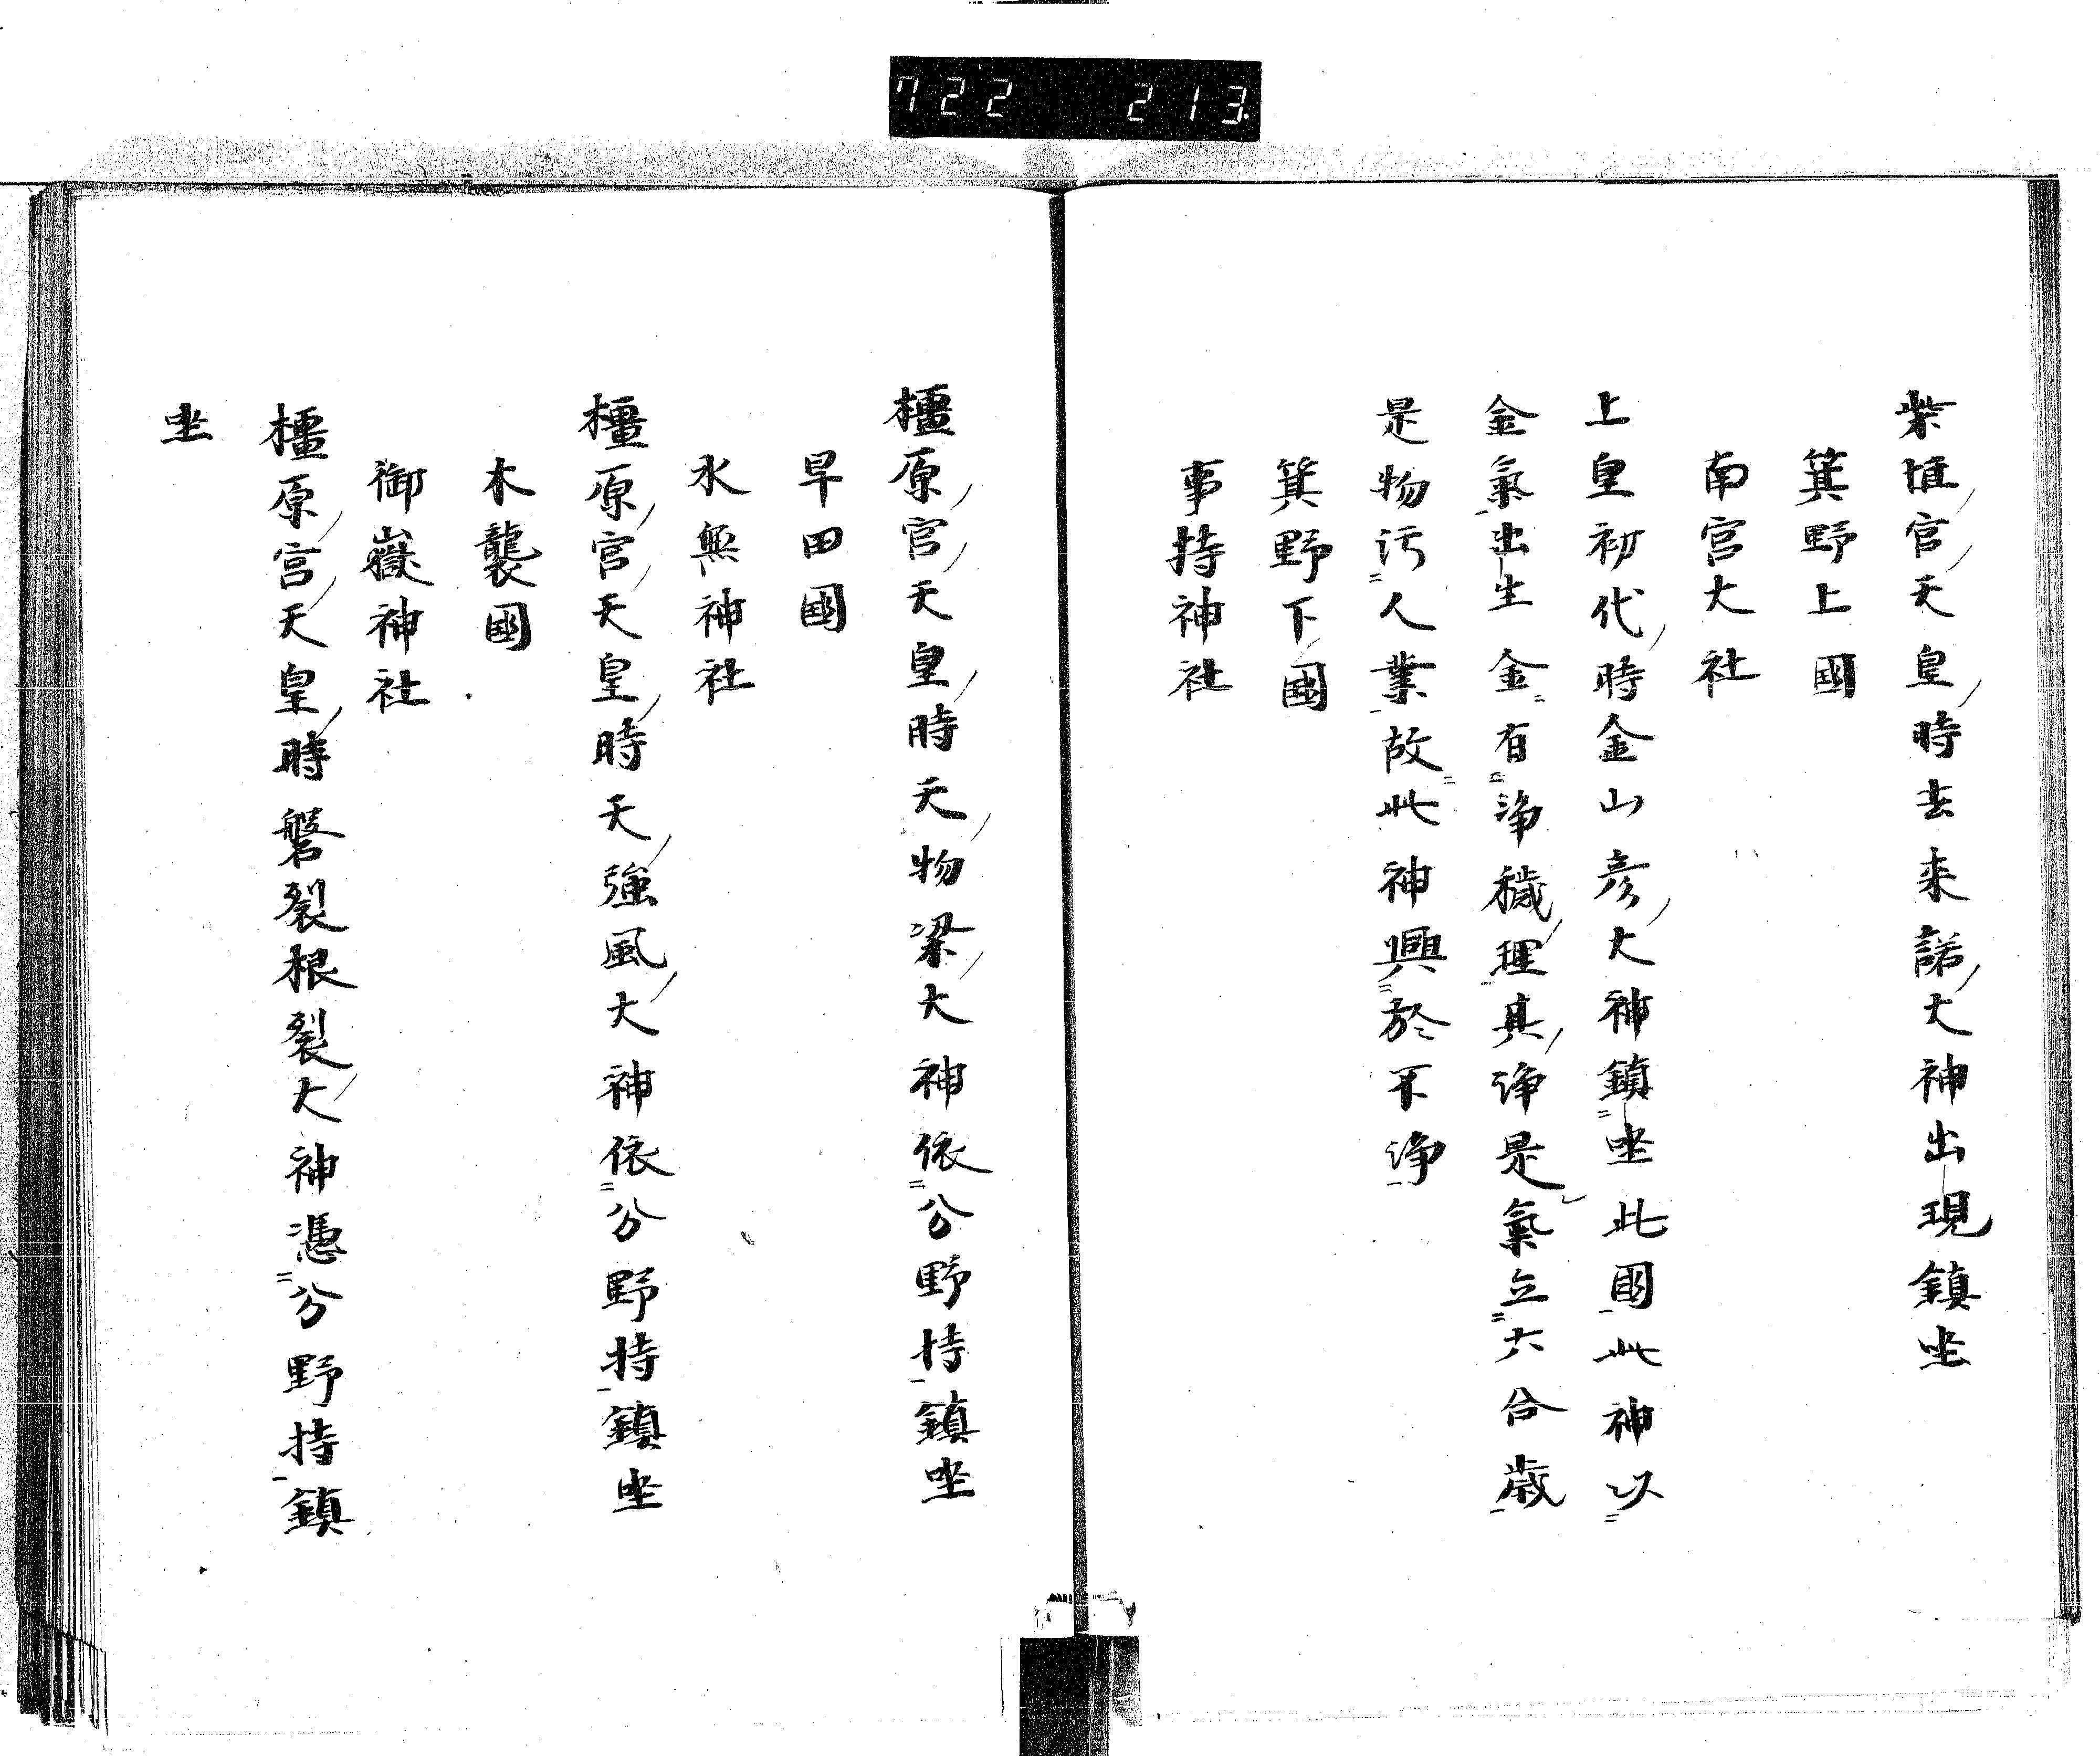 722 213
柴垣宮天皇時去来諾大神出現鎮坐
箕野上國
南宮大社
上皇初代時金山彦大神鎮坐此國此神以
金氣出生金有浄穢理其浄是氣立六合歳
是物汚人業故此神興於不浄
箕野下國
事持神社
橿原宮天皇時天物梁大神依分野持鎮坐
早田國
水無神社
橿原宮天皇時天強風大神依分野持鎮坐
木襲國
御嶽神社
橿原宮天皇時磐裂根裂大神憑分野持鎮
坐